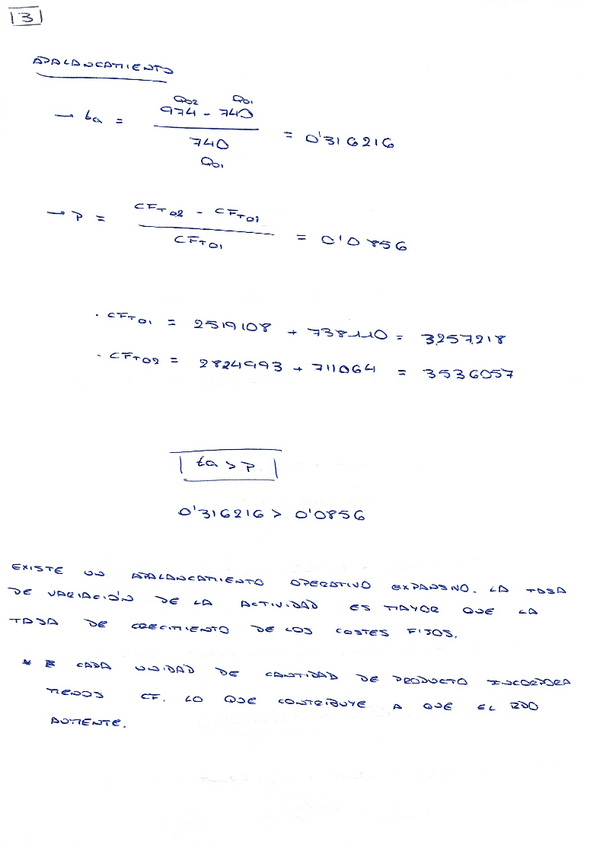 13
APALANCAMIENTO
Q02 Q01
→ ta = 974 - 740 = 0'316216
740
Q01
→ P = CFT02 - CFT01 = 0'0856
CFT01
· CFT01 = 2519108 + 738110 = 3257218
· CFT02 = 2824993 + 711064 = 3536057
ta > P
0'316216 > 0'0856
EXISTE UN APALANCAMIENTO OPERATIVO EXPANSIVO. LA TASA
DE VARIACIÓN DE LA ACTIVIDAD ES MAYOR QUE LA
TASA DE CRECIMIENTO DE LOS COSTES FIJOS.
* CADA UNIDAD DE CANTIDAD DE PRODUCTO INCORPORA
MENOS CF. LO QUE CONTRIBUYE A QUE EL RDO
AUMENTE.